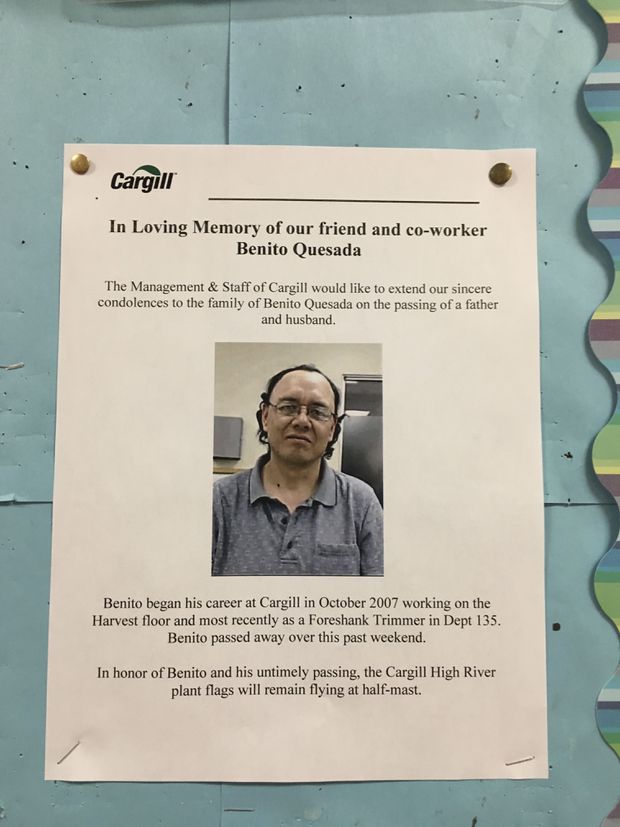 Cargill
In Loving Memory of our friend and co-worker
Benito Quesada
The Management & Staff of Cargill would like to extend our sincere
condolences to the family of Benito Quesada on the passing of a father
and husband.
Benito began his career at Cargill in October 2007 working on the
Harvest floor and most recently as a Foreshank Trimmer in Dept 135.
Benito passed away over this past weekend.
In honor of Benito and his untimely passing, the Cargill High River
plant flags will remain flying at half-mast.